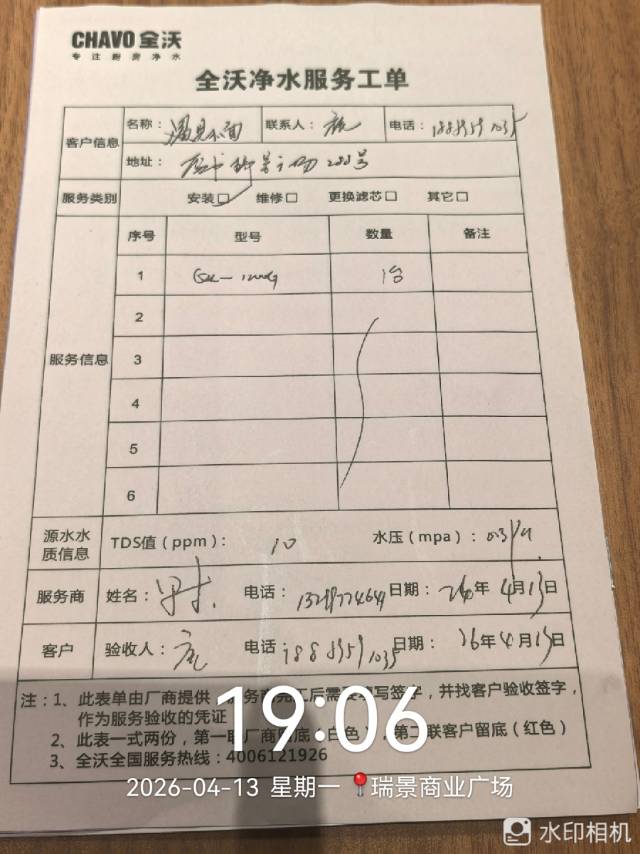 CHAVO 全沃
专 注 厨 房 净 水
全沃净水服务工单
客户信息 名称： 遇见小面 联系人： 电话：
地址： 号
服务类别 安装□ 维修□ 更换滤芯□ 其它□
服务信息 序号 型号 数量 备注
1 1台
2
3
4
5
6
源水水质信息 TDS值（ppm）： 10 水压（mpa）：
服务商 姓名： 电话： 日期： 年 4月13日
客户 验收人： 电话： 日期： 26年4月13日
注：1、此表单由厂商提供，服务商完工后需要填写签字，并找客户验收签字，
作为服务验收的凭证
2、此表一式两份，第一联厂商 底（白色），第二联客户留底（红色）
3、全沃全国服务热线：4006121926
19:06
2026-04-13 星期一 瑞景商业广场
水印相机